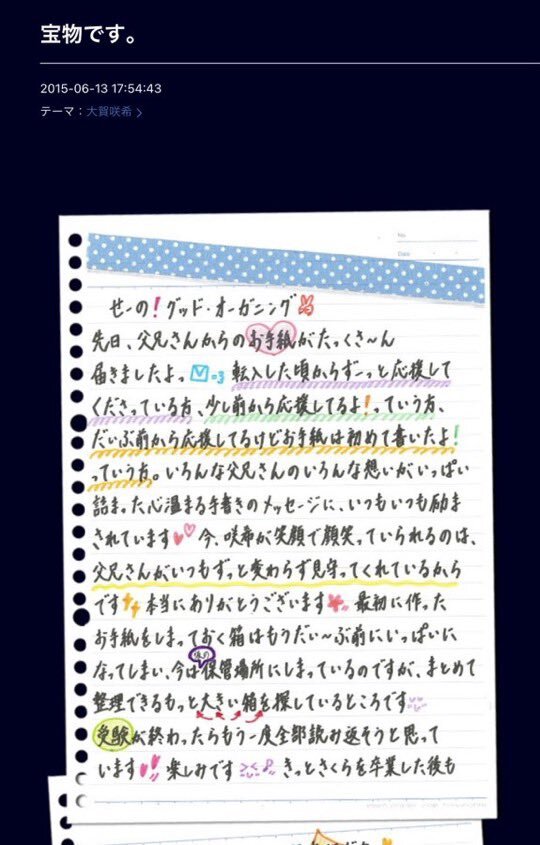 宝物です。
2015-06-13 17:54:43
テーマ：大賀咲希
No.
Date
せーの！グッド・オーガニング
先日、父兄さんからのお手紙がたっくさ〜ん
届きましたよ。=3 転入した頃からずーっと応援して
くださっている方、少し前から応援してるよ！っていう方、
だいぶ前から応援してるけどお手紙は初めて書いたよ！
っていう方。いろんな父兄さんのいろんな想いがいっぱい
詰まった心温まる手書きのメッセージに、いつもいつも励ま
されています 今、咲希が笑顔で顔笑っていられるのは、
父兄さんがいつもずっと変わらず見守ってくれているから
です 本当にありがとうございます 最初に作った
お手紙をしまっておく箱はもうだい〜ぶ前にいっぱいに
なってしまい、今は仮の保管場所にしまっているのですが、まとめて
整理できるもっと大きい箱を探しているところです
受験が終わったらもう一度全部読み返そうと思って
います 楽しみです >< きっとさくらを卒業した後も